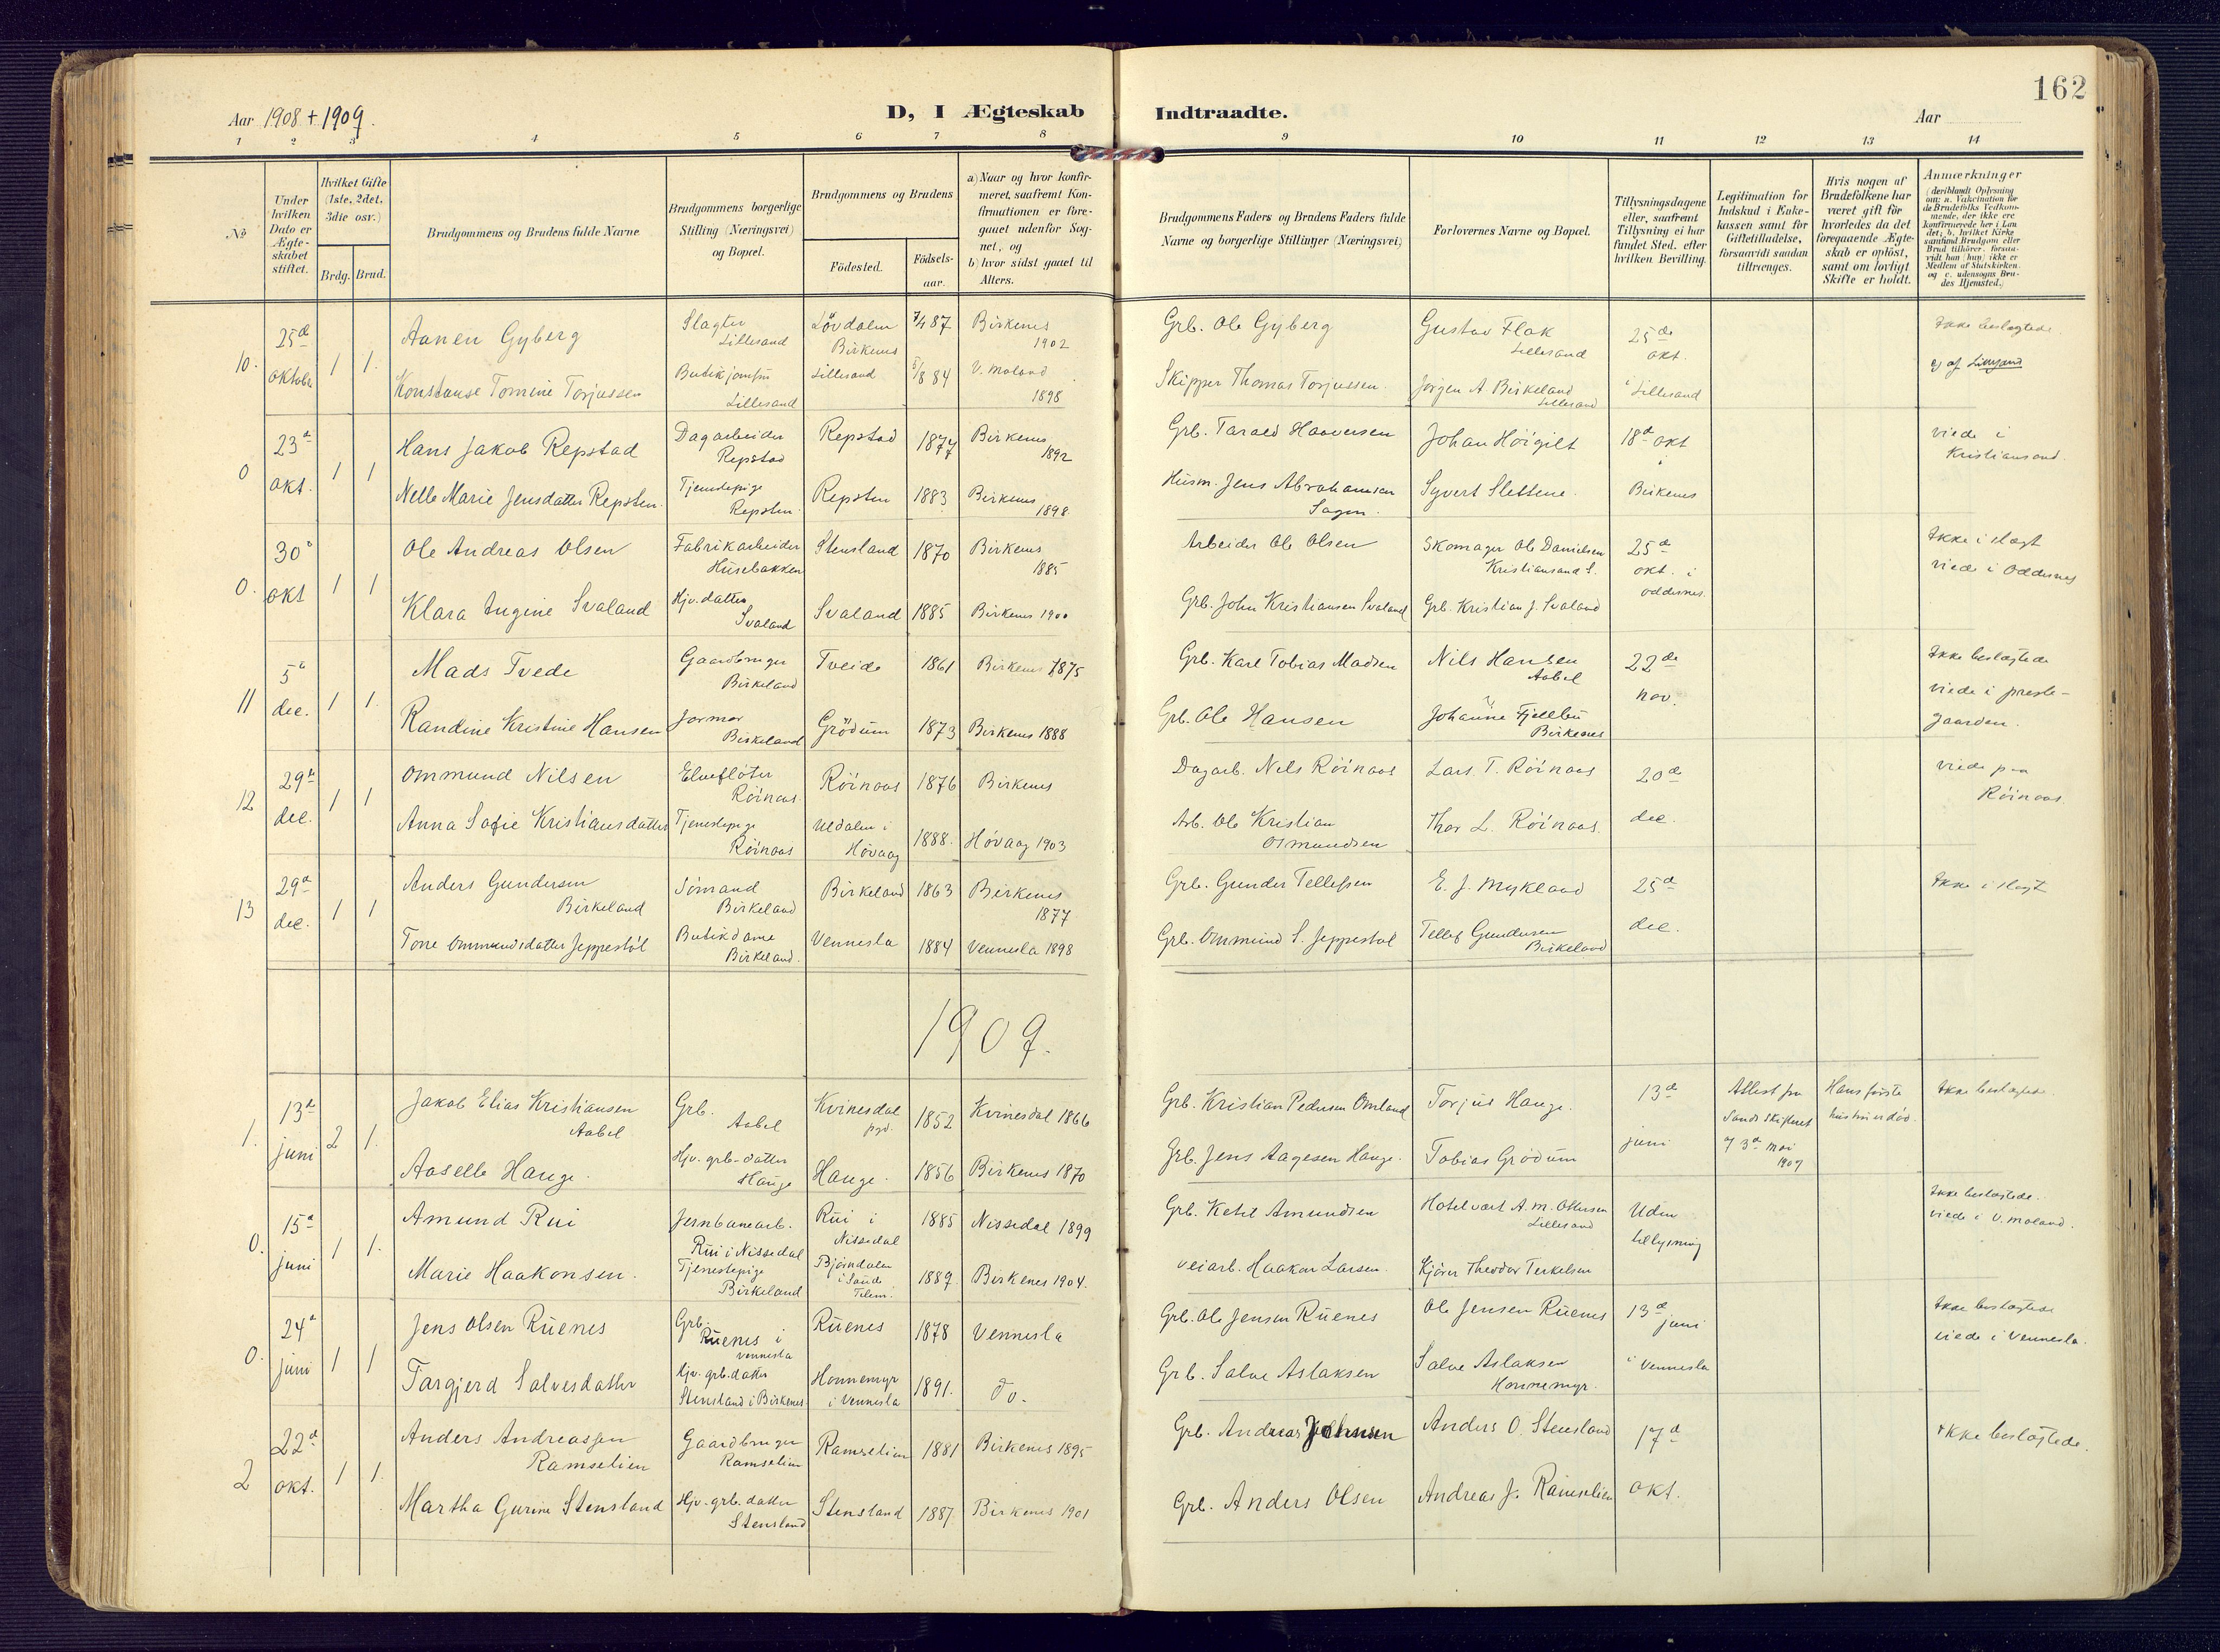 162
Aar 1908 + 1909.
D, I Ægteskab Indtraadte.
Aar
1 2 3 4 5 6 7 8 9 10 11 12 13 14
No
Under hvilken Dato er Ægteskabet stiftet.
Hvilket Gifte (1ste, 2det, 3die osv.)
Brdg. Brud.
Brudgommens og Brudens fulde Navne
Brudgommens borgerlige Stilling (Næringsvei) og Bopæl.
Brudgommens og Brudens
Fødested.
Fødselsaar.
a) Naar og hvor konfirmeret, saafremt Konfirmationen er foregaaet udenfor Sognet, og
b) hvor sidst gaaet til Alters.
Brudgommens Faders og Brudens Faders fulde Navne og borgerlige Stillinger (Næringsvei)
Forlovernes Navne og Bopæl.
Tillysningsdagene eller, saafremt Tillysning ei har fundet Sted, efter hvilken Bevilling.
Legitimation for Indskud i Enkekassen samt for Giftetilladelse, forsaavidt saadan tiltrænges.
Hvis nogen af Brudefolkene har været gift før hvorledes da det foregaaende Ægteskab er opløst, samt om lovligt Skifte er holdt.
Anmærkninger
(deriblandt Oplysning om: a. Vakcination for de Brudefolks Vedkommende, der ikke ere konfirmerede her i Landet; b. hvilket Kirkesamfund Brudgom eller Brud tilhører, forsaavidt han (hun) ikke er Medlem af Statskirken, og c. udensogns Brudes Hjemsted.)
10. 25de oktober 1 1.
Aanen Gyberg Slagter Lillesand Lövdalen Birkenes 7/4 87 Birkenes 1902 Grb. Ole Gyberg Gustav Flak Lillesand 25de okt. Ikke beslægtede.
Konstanse Tomine Torjussen Butikjomfru Lillesand Lillesand 5/8 84 V. Moland 1898 Skipper Thomas Torjussen. Jørgen A Birkeland Lillesand i Lillesand af Lillesand
0 23d okt. 1 1
Hans Jakob Repstad Dagarbeider Repstad Repstad 1877 Birkenes 1892 Grb. Tarald Haaversen Johan Höigilt 18d okt viede i Kristiansand.
Nelle Marie Jensdatter Repsten. Tjenestepige Repsten. Repsten 1883 Birkenes 1898. Husm. Jens Abrahamsen Sagen. Syvert Slettene. Birkenes
0. 30d okt 1 1
Ole Andreas Olsen Fabrikarbeider Husebakken Stensland 1870 Birkenes 1885 Arbeider Ole Olsen Skomager Ole Danielsen Kristiansand S. 25de okt. i Oddernes. Ikke i slægt viede i Oddernes
Klara Eugine Svaland Hjv. datter Svaland Svaland 1885 Birkenes 1900 Grb. John Kristiansen Svaland Grb. Kristian J. Svaland
11 5d dec. 1 1.
Mads Tvede Gaardbruger Birkeland Tveide 1861 Birkenes 1875 Grb. Karl Tobias Madsen Nils Hansen Aabel 22de nov. Ikke beslægtede viede i prestegaarden.
Randine Kristine Hansen Jormor Birkeland Grödum 1873 Birkenes 1888 Grb. Ole Hansen Johanne Fjellbu Birkenes
12 29d dec. 1 1
Ommund Nilsen Elveflöter Röinaas Röinaas 1876 Birkenes Dagarb. Nils Röinaas Lars T. Röinaas 20de dec. viede paa Röinaas.
Anna Sofie Kristiansdatter Tjenestepige Röinaas Uldalen i Hövaag 1888. Hövaag 1903 Arb. Ole Kristian Osmundsen Thor L. Röinaas.
13 29d dec. 1 1
Anders Gundersen Birkeland Sömand Birkeland Birkeland 1863 Birkenes 1877 Grb. Gunder Tellefsen E. J. Mykland 25d dec. Ikke i slægt
Tone Ommundsdatter Jeppestöl Butikdame Birkeland. Vennesla 1884 Vennesla 1898 Grb. Ommund S. Jeppestöl Tellef Gundersen Birkeland
1909.
1. 13d juni 2 1.
Jakob Elias Kristiansen Aabel Grb. Aabel Kvinesdal pgd. 1852 Kvinesdal 1866 Grb. Kristian Pedersen Omland Torjus Hauge. 13d juni Attest fra Sands Skifteret af 3d Mai 1909 Hans første hustru er död. Ikke beslægtede
Aaselle Hauge. Hjv. grb-datter Hauge Hauge. 1856 Birkenes 1870 Grb. Jens Aagesen Hauge. Tobias Grödum
0. 15d juni 1 1.
Amund Rui Jernbanearb. Rui i Nissedal Rui i Nissedal 1885 Nissedal 1899 Grb. Ketil Amundsen Hotelvært A. M. Ottersen Lillesand Uden tillysning Ikke beslægtede. viede i V. Moland.
Marie Haakonsen. Tjenestepige Birkeland Björndalen i Sande Telem. 1889. Birkenes 1904. Veiarb. Haakon Larsen. Kjører Theodor Terkelsen
0. 24d juni 1 1
Jens Olsen Ruenes Grb. Ruenes i Vennesla Ruenes 1878 Vennesla Grb. Ole Jensen Ruenes Ole Jensen Ruenes 13d juni Ikke beslægtede viede i Vennesla.
Targjerd Salvesdatter hjv. grb. datter Stensland i Birkenes Honnemyr i Vennesla 1891. do. Grb. Salve Aslaksen Salve Aslaksen Honnemyr. i Vennesla
2 22d okt. 1 1.
Anders Andreassen Ramselien Gaardbruger Ramselien Ramselien 1881 Birkenes 1895 Grb. Andreas Johnsen Anders O. Stensland 17d okt. Ikke beslægtede.
Martha Gurine Stensland Hjv. grb. datter Stensland Stensland 1887. Birkenes 1901 Grb. Anders Olsen Andreas J. Ramselien